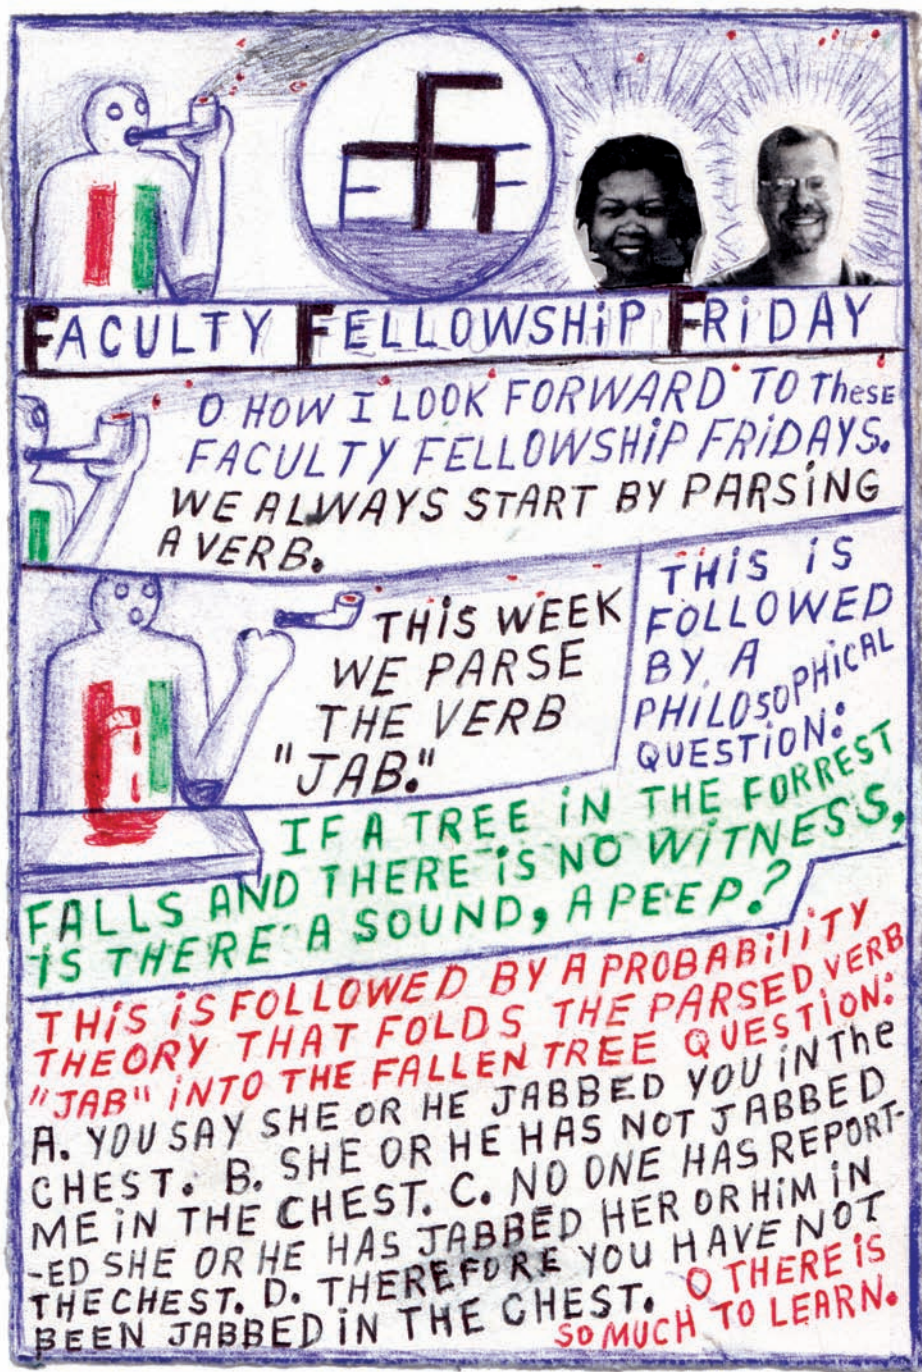 FACULTY FELLOWSHiP FRiDAY
O HOW I LOOK FORWARD TO TheSE
FACULTY FELLOWSHiP FRiDAYS.
WE ALWAYS START BY PARSiNG
A VERB.
THiS WEEK
WE PARSE
THE VERB
"JAB."
THiS iS
FOLLOWED
BY A
PHiLOSOPHiCAL
QUESTiON:
IF A TREE iN THE FORREST
FALLS AND THERE iS NO WiTNESS,
iS THERE A SOUND, A PEEP?
THiS iS FOLLOWED BY A PROBABiliTY
THEORY THAT FOLDS THE PARSED VERB
"JAB" iNTO THE FALLEN TREE QUESTiON:
A. YOU SAY SHE OR HE JABBED YOU iN The
CHEST. B. SHE OR HE HAS NOT JABBED
ME iN THE CHEST. C. NO ONE HAS REPORT-
-ED SHE OR HE HAS JABBED HER OR HiM iN
THE CHEST. D. THEREFORE YOU HAVE NOT
BEEN JABBED iN THE CHEST. O THERE iS
SO MUCH TO LEARN.